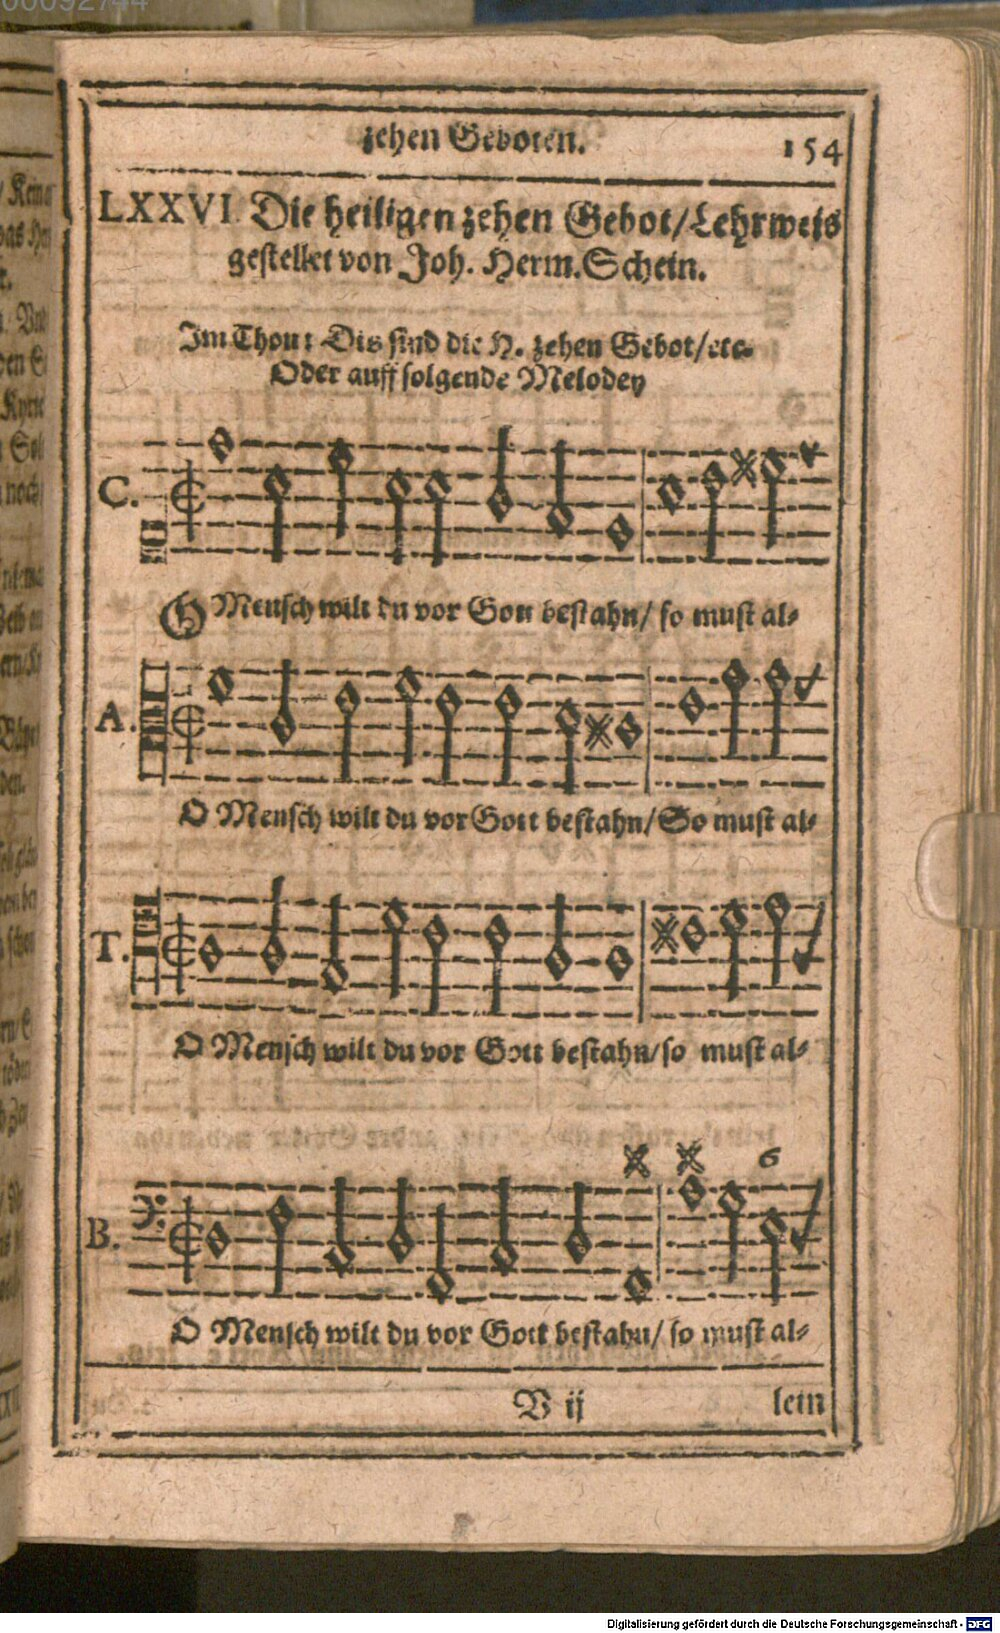 00092744
zehen Geboten.
154
LXXVI. Die heiligen zehen Gebot/ Lehrweis
gestellet von Joh. Herm. Schein.
Im Thon: Dis sind die H. zehen Gebot/ etc.
Oder auff folgende Melodey
C.
O Mensch wilt du vor Gott bestahn/ so must al-
A.
O Mensch wilt du vor Gott bestahn/ So must al-
T.
O Mensch wilt du vor Gott bestahn/ so must al-
6
B.
O Mensch wilt du vor Gott bestahn/ so must al-
V ij
lein
Digitalisierung gefördert durch die Deutsche Forschungsgemeinschaft - DFG